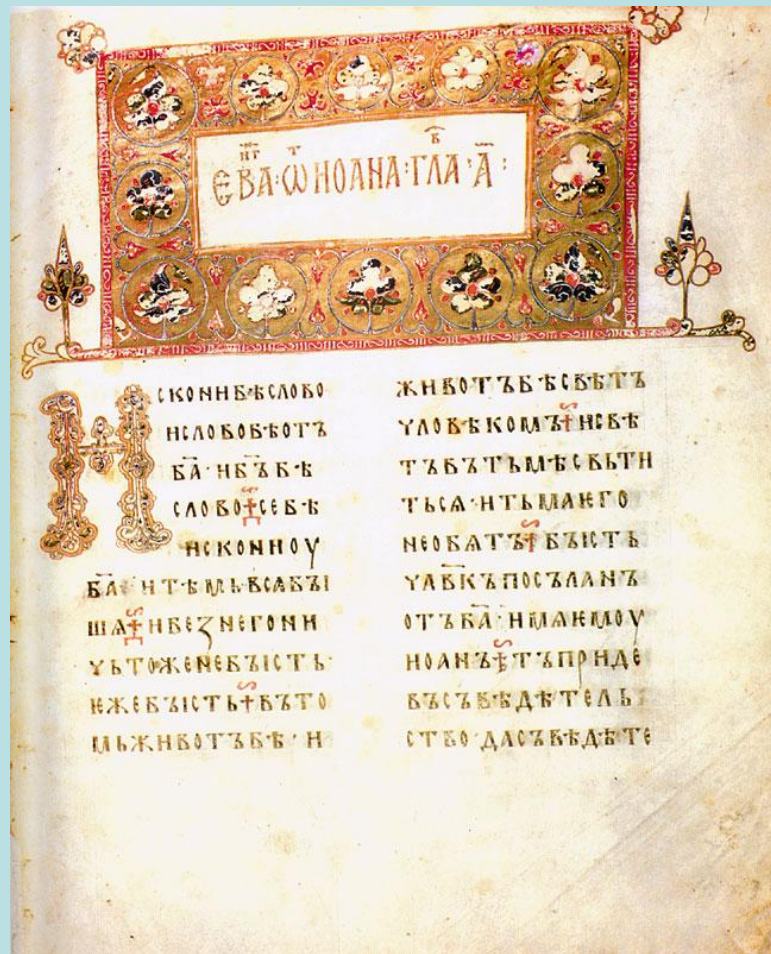 ЕВАⷩ҇ⷢ҇·Ѡⷮ ИОАНА·ГЛАⷡ҇·А҃:
ИСКОНИБѢСЛОВО
ИСЛОВОБѢОТЪ
БА҃·ИБЪ҃БѢ
СЛОВО†СЕБѢ
ИСКОНИОУ
БА҃·ИТѢМЬВСѦБꙐ
ШѦ†ИБЕЗНЕГОНИ
ЧЬТОЖЕНЕБꙐСТЬ·
ѤЖЕБꙐСТЬ†ВЪТО
МЬЖИВОТЪБѢ·И
ЖИВОТЪБѢСВѢТЪ
ЧЛОВѢКОМЪ†ИСВѢ
ТЪВЪТЬМѢСВЬТИ
ТЬСѦ·ИТЬМАѤГО
НЕОБѦТЪ†БꙐСТЬ
ЧЛ҃ВКЪПОСЪЛАНЪ
ОТЪБА҃·ИМѦѤМОУ
ИОАНЪ†ТЪПРИДЕ
ВЪСЪВѢДѢТЕЛЬ
СТВО·ДАСЪВѢДѢТЕ